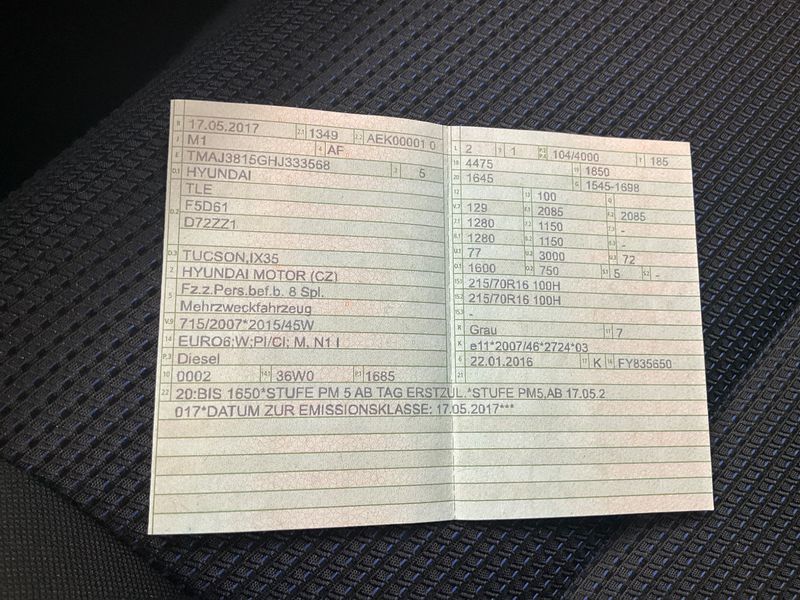 B 17.05.2017 2.1 1349 2.2 AEK00001 0
J M1 4 AF
E TMAJ3815GHJ333568 3 5
D.1 HYUNDAI
TLE
D.2 F5D61
D72ZZ1
D.3 TUCSON,IX35
2 HYUNDAI MOTOR (CZ)
5 Fz.z.Pers.bef.b. 8 Spl.
Mehrzweckfahrzeug
V.9 715/2007*2015/45W
14 EURO6;W;PI/CI; M, N1 I
P.3 Diesel
10 0002 14.1 36W0 P.1 1685
L 2 9 1 P.2 P.4 104/4000 T 185
18 4475 19 1850
20 1645 G 1545-1698
12 13 100 Q
V.7 129 F.1 2085 F.2 2085
7.1 1280 7.2 1150 7.3 -
8.1 1280 8.2 1150 8.3 -
U.1 77 U.2 3000 U.3 72
O.1 1600 O.2 750 S.1 5 S.2 -
15.1 215/70R16 100H
15.2 215/70R16 100H
15.3 -
R Grau 11 7
K e11*2007/46*2724*03
6 22.01.2016 17 K 16 FY835650
21
22 20:BIS 1650*STUFE PM 5 AB TAG ERSTZUL.*STUFE PM5,AB 17.05.2
017*DATUM ZUR EMISSIONSKLASSE: 17.05.2017***